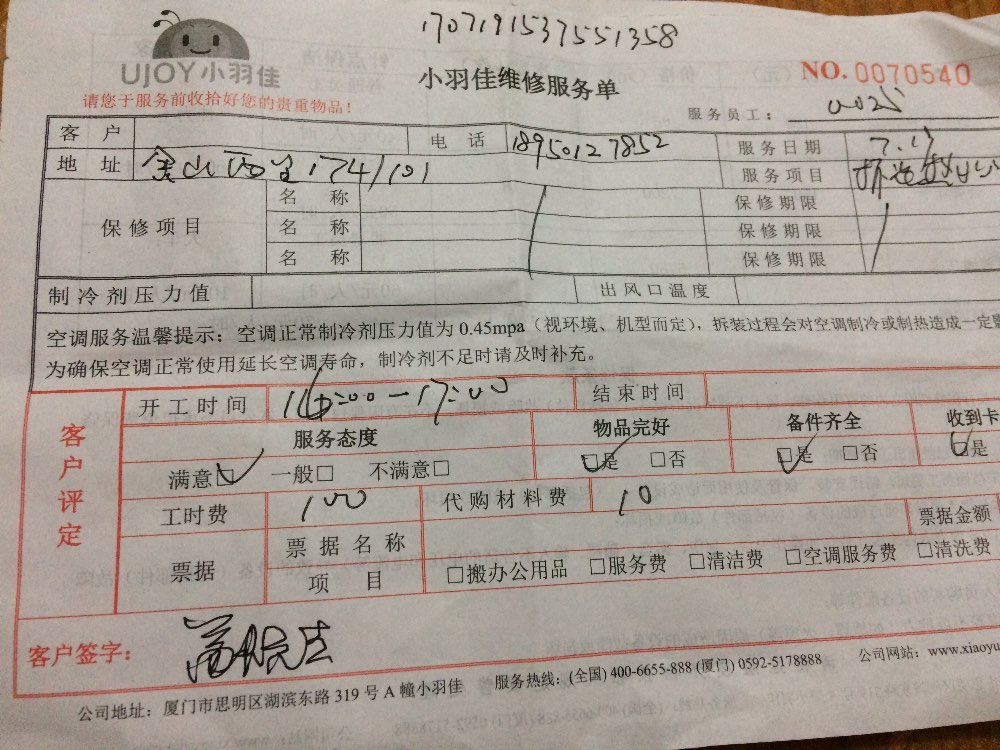 170719153755 1358
UJOY小羽佳
小羽佳维修服务单
NO. 0070540
请您于服务前收拾好您的贵重物品！
服务员工： 0025
客 户 电 话 18950127852 服务日期 7.19
地 址 金山西里174/101 服务项目
保修项目 名 称 保修期限
名 称 保修期限
名 称 保修期限
制冷剂压力值 出风口温度
空调服务温馨提示：空调正常制冷剂压力值为 0.45mpa（视环境、机型而定），拆装过程会对空调制冷或制热造成一定
为确保空调正常使用延长空调寿命，制冷剂不足时请及时补充。
客户评定
开工时间 16:00-17:00 结束时间
服务态度 物品完好 备件齐全 收到卡
满意☑ 一般□ 不满意□ ☑是 □否 ☑是 □否 ☑是
工时费 100 代购材料费 10 票据金额
票据 票据名称
项 目 □搬办公用品 □服务费 □清洁费 □空调服务费 □清洗费
客户签字：
公司地址：厦门市思明区湖滨东路 319 号 A 幢小羽佳 服务热线：(全国) 400-6655-888 (厦门) 0592-5178888 公司网站：www.xiaoyu